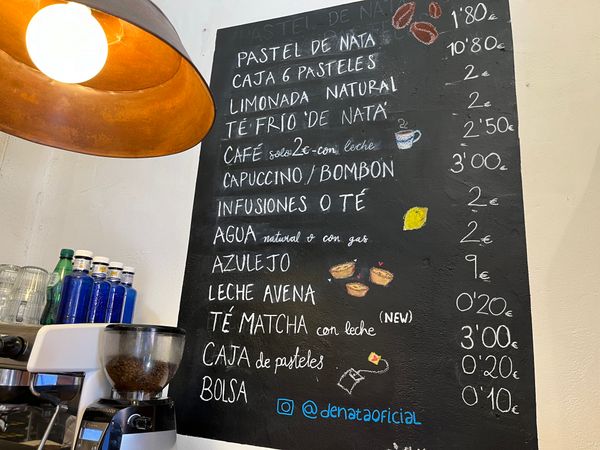 PASTEL DE NATA 1'80€
CAJA 6 PASTELES 10'80€
LIMONADA NATURAL 2€
TÉ FRÍO 'DE NATA' 2€
CAFÉ solo 2€-con leche 2'50€
CAPUCCINO/BOMBÓN 3'00€
INFUSIONES O TÉ 2€
AGUA natural o con gas 2€
AZULEJO 9€
LECHE AVENA 0'20€
TÉ MATCHA con leche (NEW) 3'00€
CAJA de pasteles 0'20€
BOLSA 0'10€
@denataoficial